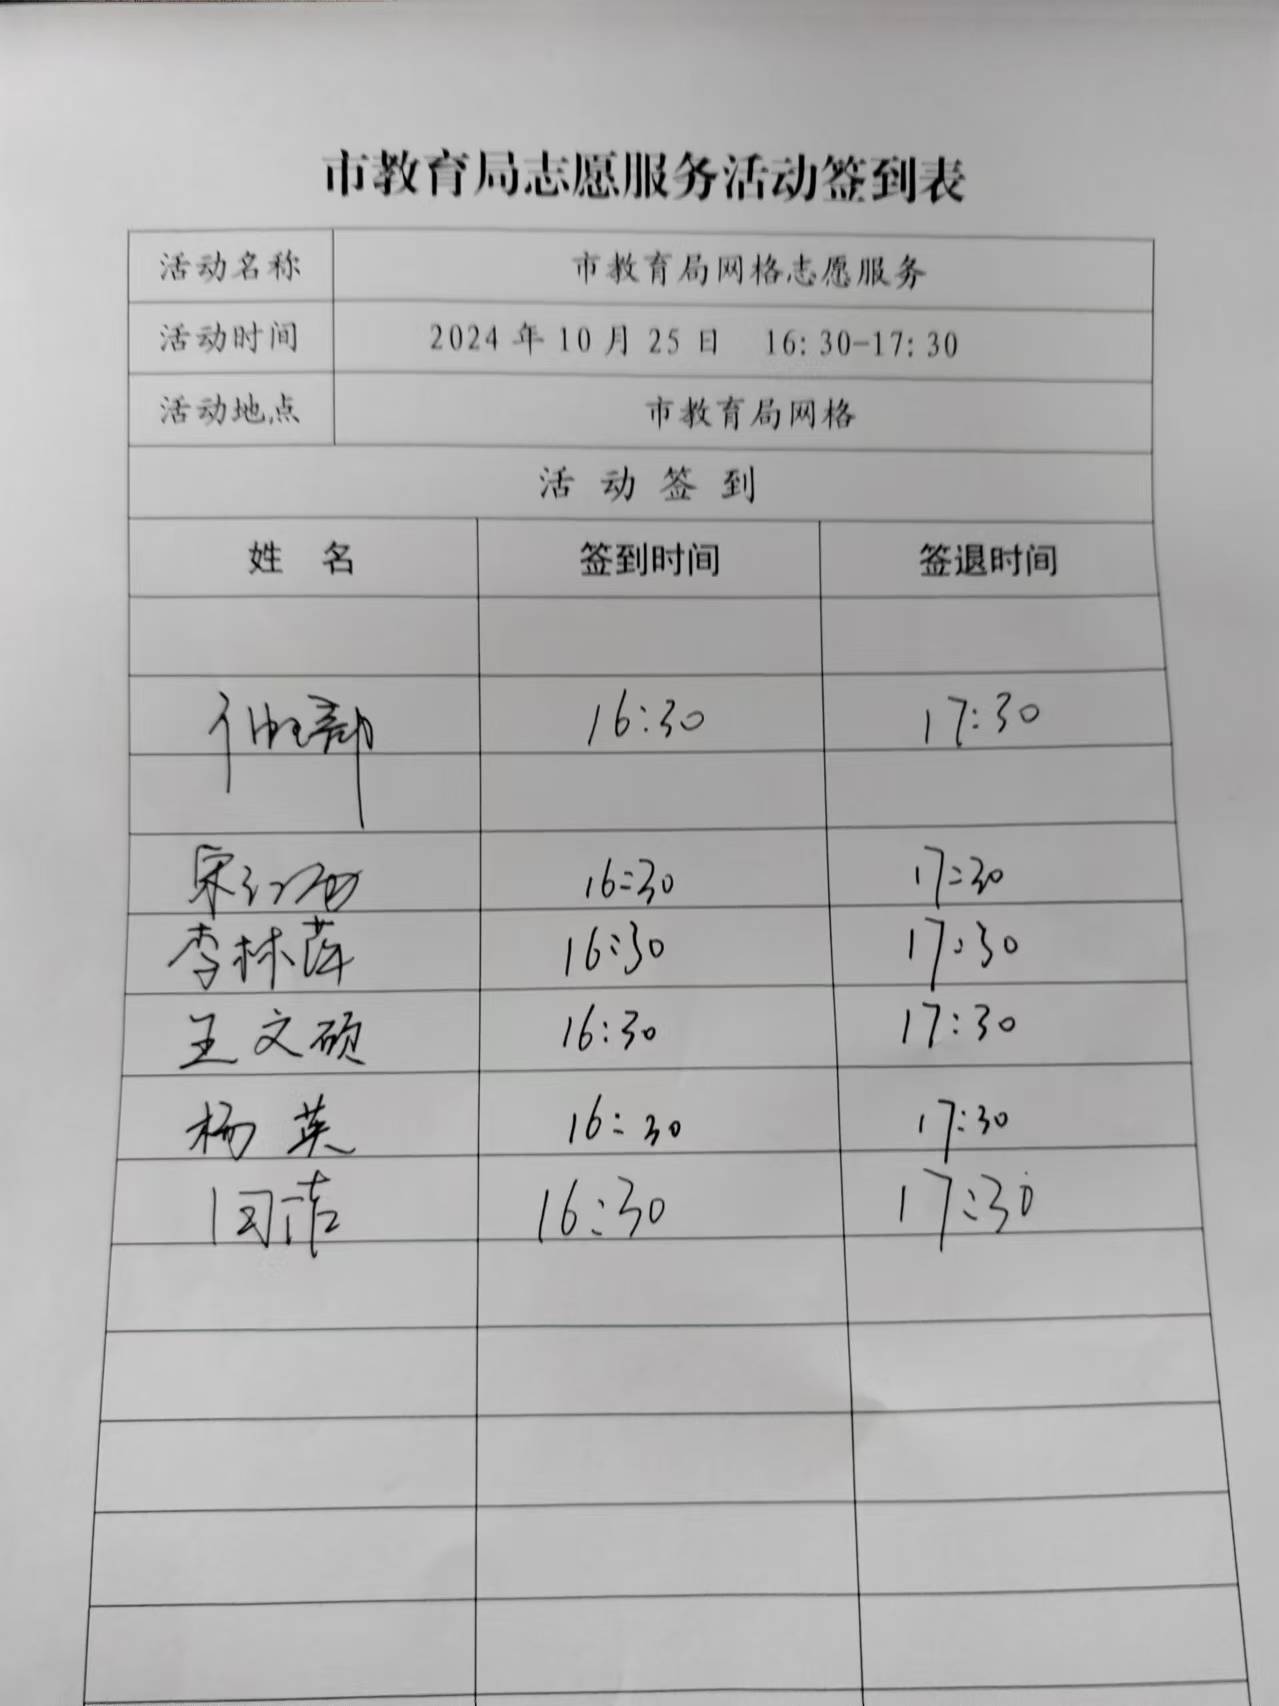 市教育局志愿服务活动签到表
活动名称 市教育局网格志愿服务
活动时间 2024年10月25日 16:30-17:30
活动地点 市教育局网格
活动签到
姓名 签到时间 签退时间
16:30 17:30
宋红 16:30 17:30
李林萍 16:30 17:30
王文硕 16:30 17:30
杨英 16:30 17:30
闫洁 16:30 17:30